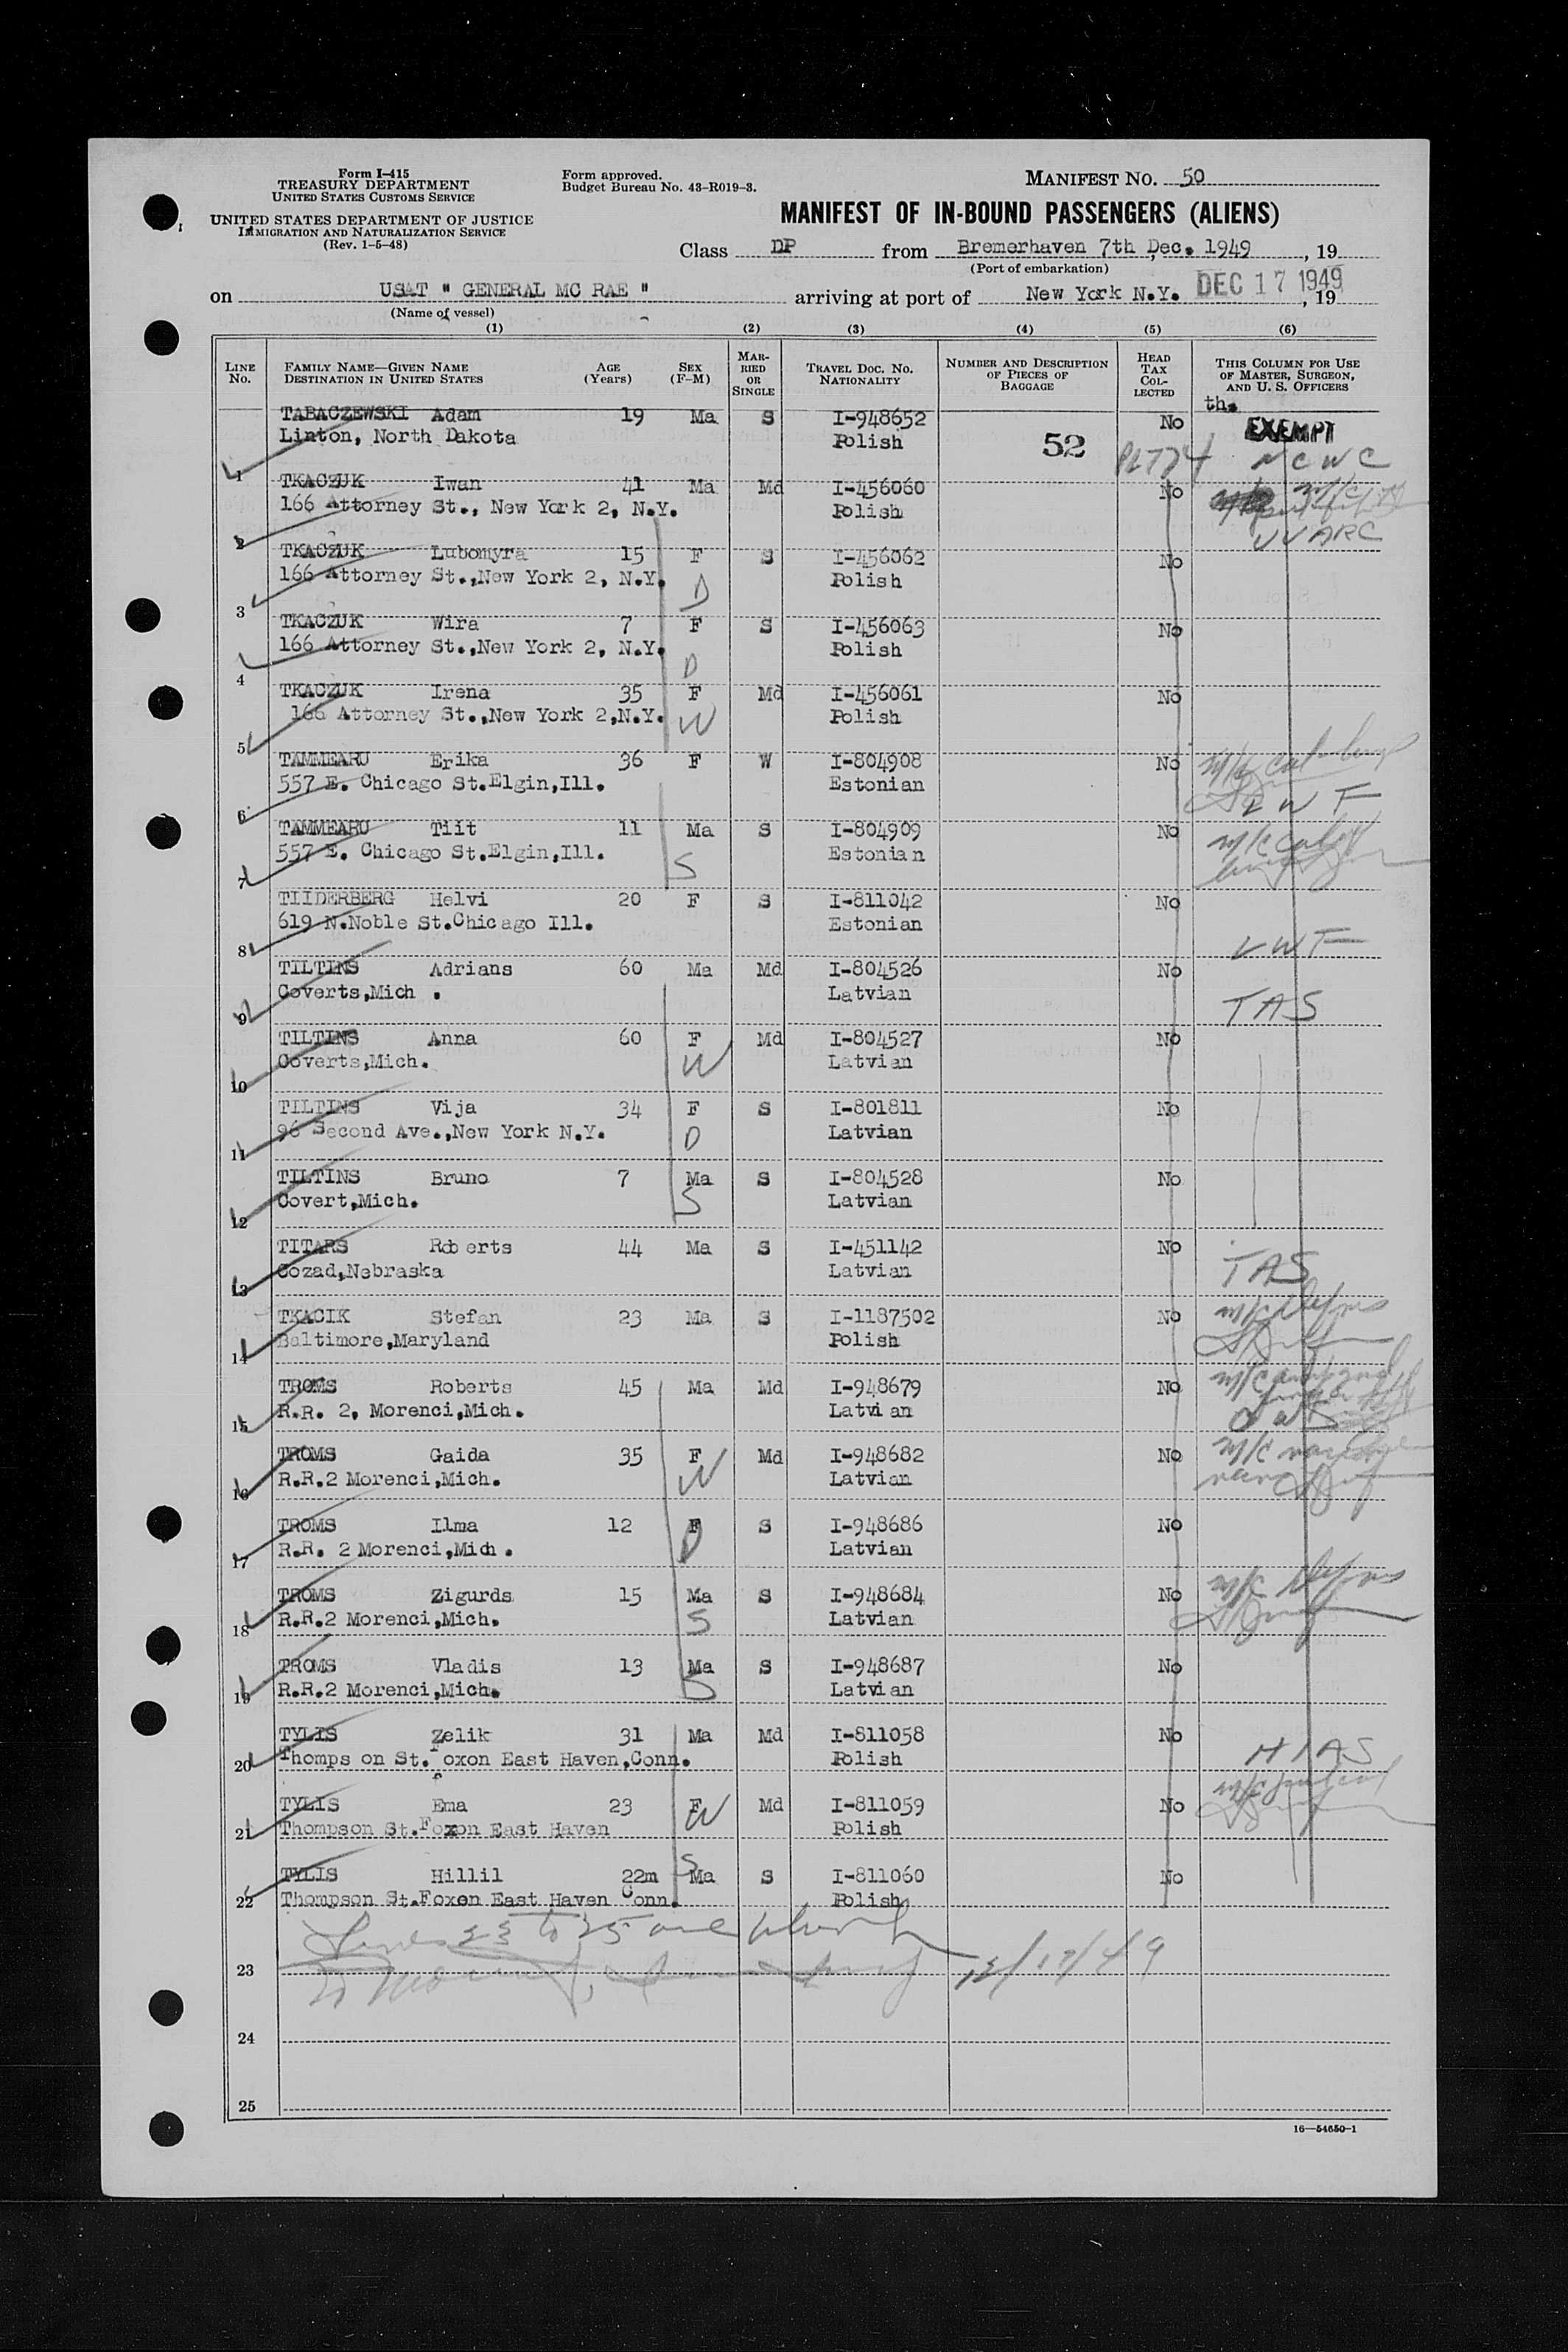 Form I-415
TREASURY DEPARTMENT
UNITED STATES CUSTOMS SERVICE
UNITED STATES DEPARTMENT OF JUSTICE
IMMIGRATION AND NATURALIZATION SERVICE
(Rev. 1-5-48)
Form approved.
Budget Bureau No. 43-R019-3.
MANIFEST NO. 50
MANIFEST OF IN-BOUND PASSENGERS (ALIENS)
Class DP from Bremerhaven 7th Dec. 1949, 19
(Port of embarkation)
on USAT " GENERAL MC RAE " arriving at port of New York N.Y. DEC 17 1949, 19
(Name of vessel)
(1) (2) (3) (4) (5) (6)
LINE No. FAMILY NAME—GIVEN NAME DESTINATION IN UNITED STATES AGE (Years) SEX (F-M) MARRIED OR SINGLE TRAVEL DOC. NO. NATIONALITY NUMBER AND DESCRIPTION OF PIECES OF BAGGAGE HEAD TAX COLLECTED THIS COLUMN FOR USE OF MASTER, SURGEON, AND U. S. OFFICERS
th.
TABACZEWSKI Adam 19 Ma S I-948652 No EXEMPT
1 Linton, North Dakota Polish 52 NCWC
TKACZUK Iwan 41 Ma Md I-456060 No
2 166 Attorney St., New York 2, N.Y. Polish
TKACZUK Lubomyra 15 F S I-456062 No
3 166 Attorney St.,New York 2, N.Y. D Polish
TKACZUK Wira 7 F S I-456063 No
4 166 Attorney St.,New York 2, N.Y. D Polish
TKACZUK Irena 35 F Md I-456061 No
5 166 Attorney St.,New York 2,N.Y. W Polish
TAMMEARU Erika 36 F W I-804908 No
6 557 E. Chicago St.Elgin,Ill. Estonian LWF
TAMMEARU Tiit 11 Ma S I-804909 No
7 557 E. Chicago St.Elgin,Ill. S Estonian
TIIDERBERG Helvi 20 F S I-811042 No
8 619 N.Noble St.Chicago Ill. Estonian LWF
TILTINS Adrians 60 Ma Md I-804526 No
9 Coverts,Mich . Latvian TAS
TILTINS Anna 60 F Md I-804527 No
10 Coverts,Mich. W Latvian
TILTINS Vija 34 F S I-801811 No
11 96 Second Ave.,New York N.Y. D Latvian
TILTINS Bruno 7 Ma S I-804528 No
12 Covert,Mich. S Latvian
TITARS Roberts 44 Ma S I-451142 No
13 Cozad,Nebraska Latvian TAS
TKACIK Stefan 23 Ma S I-1187502 No
14 Baltimore,Maryland Polish
TROMS Roberts 45 Ma Md I-948679 No
15 R.R. 2, Morenci,Mich. Latvian
TROMS Gaida 35 F Md I-948682 No
16 R.R.2 Morenci,Mich. W Latvian
TROMS Ilma 12 F S I-948686 No
17 R.R. 2 Morenci,Mich . D Latvian
TROMS Zigurds 15 Ma S I-948684 No
18 R.R.2 Morenci,Mich. S Latvian
TROMS Vladis 13 Ma S I-948687 No
19 R.R.2 Morenci,Mich. S Latvian
TYLIS Zelik 31 Ma Md I-811058 No
20 Thompson St.Foxon East Haven,Conn. Polish HIAS
TYLIS Ema 23 F Md I-811059 No
21 Thompson St.Foxon East Haven W Polish
TYLIS Hillil 22m Ma S I-811060 No
22 Thompson St.Foxon East Haven Conn. S Polish
Lines 23 to 25 are blank
23 12/17/49
24
25
16—54650-1